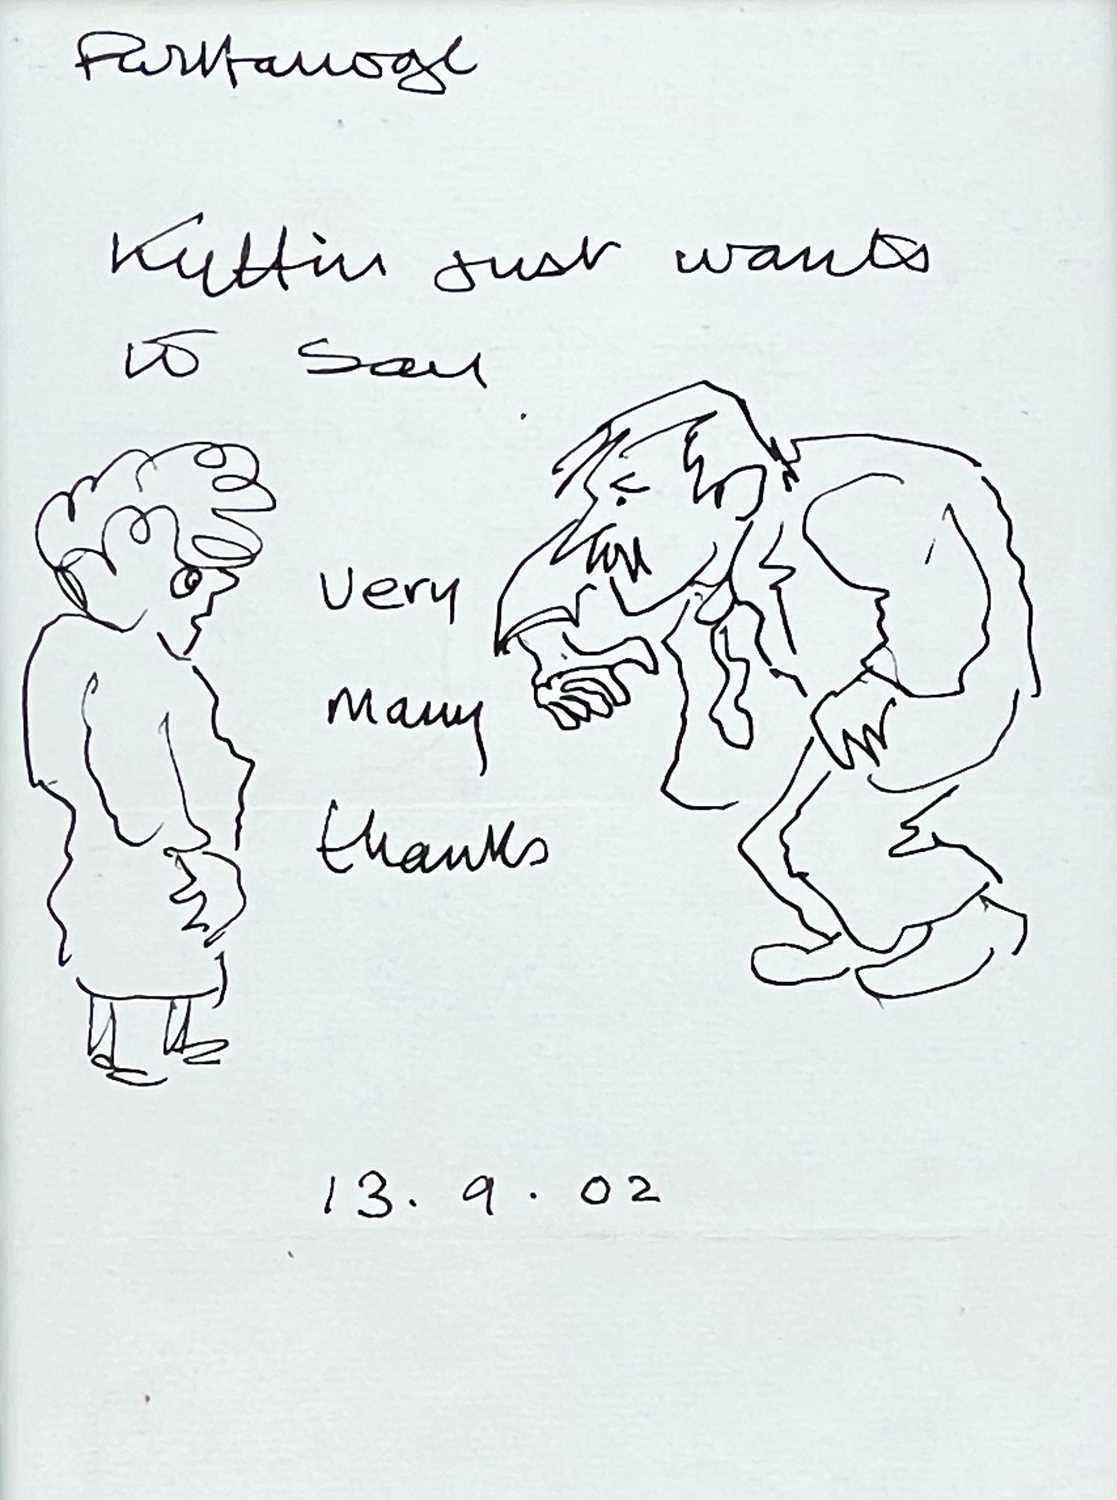 Kyffin just wants
to say
very
many
thanks
13.9.02